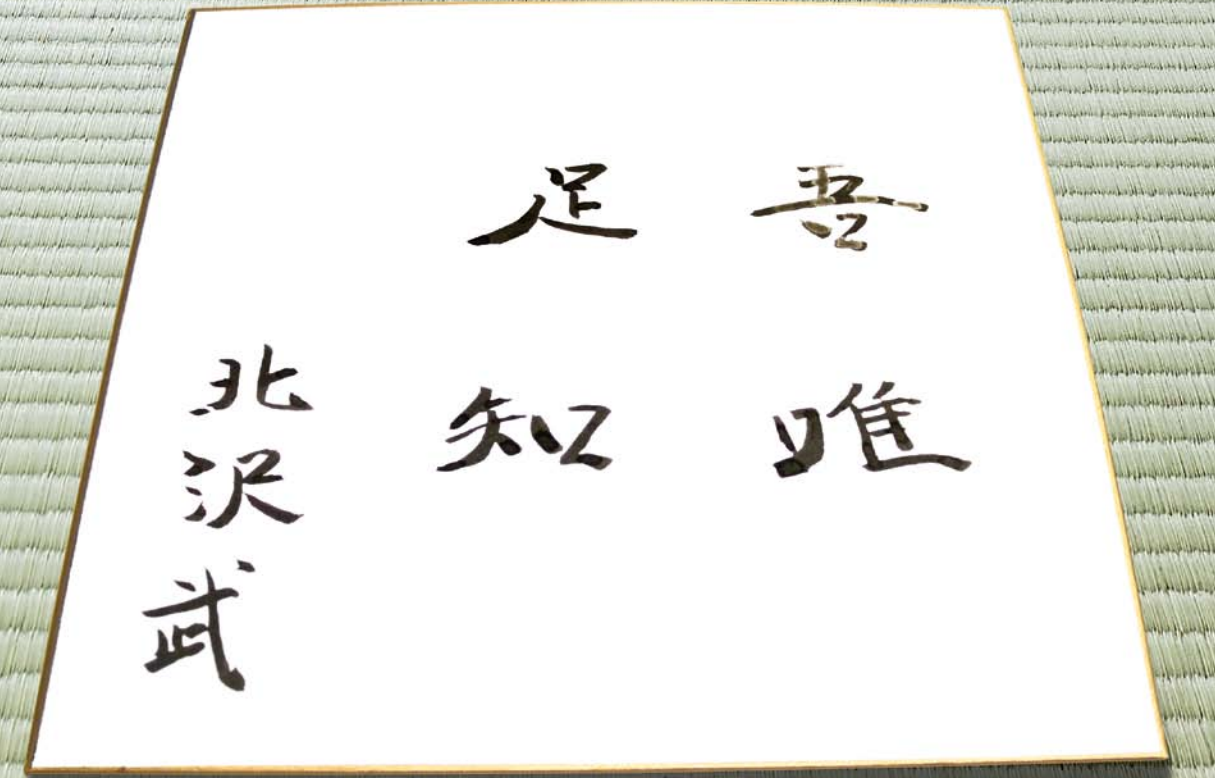 吾唯
足知
北沢武